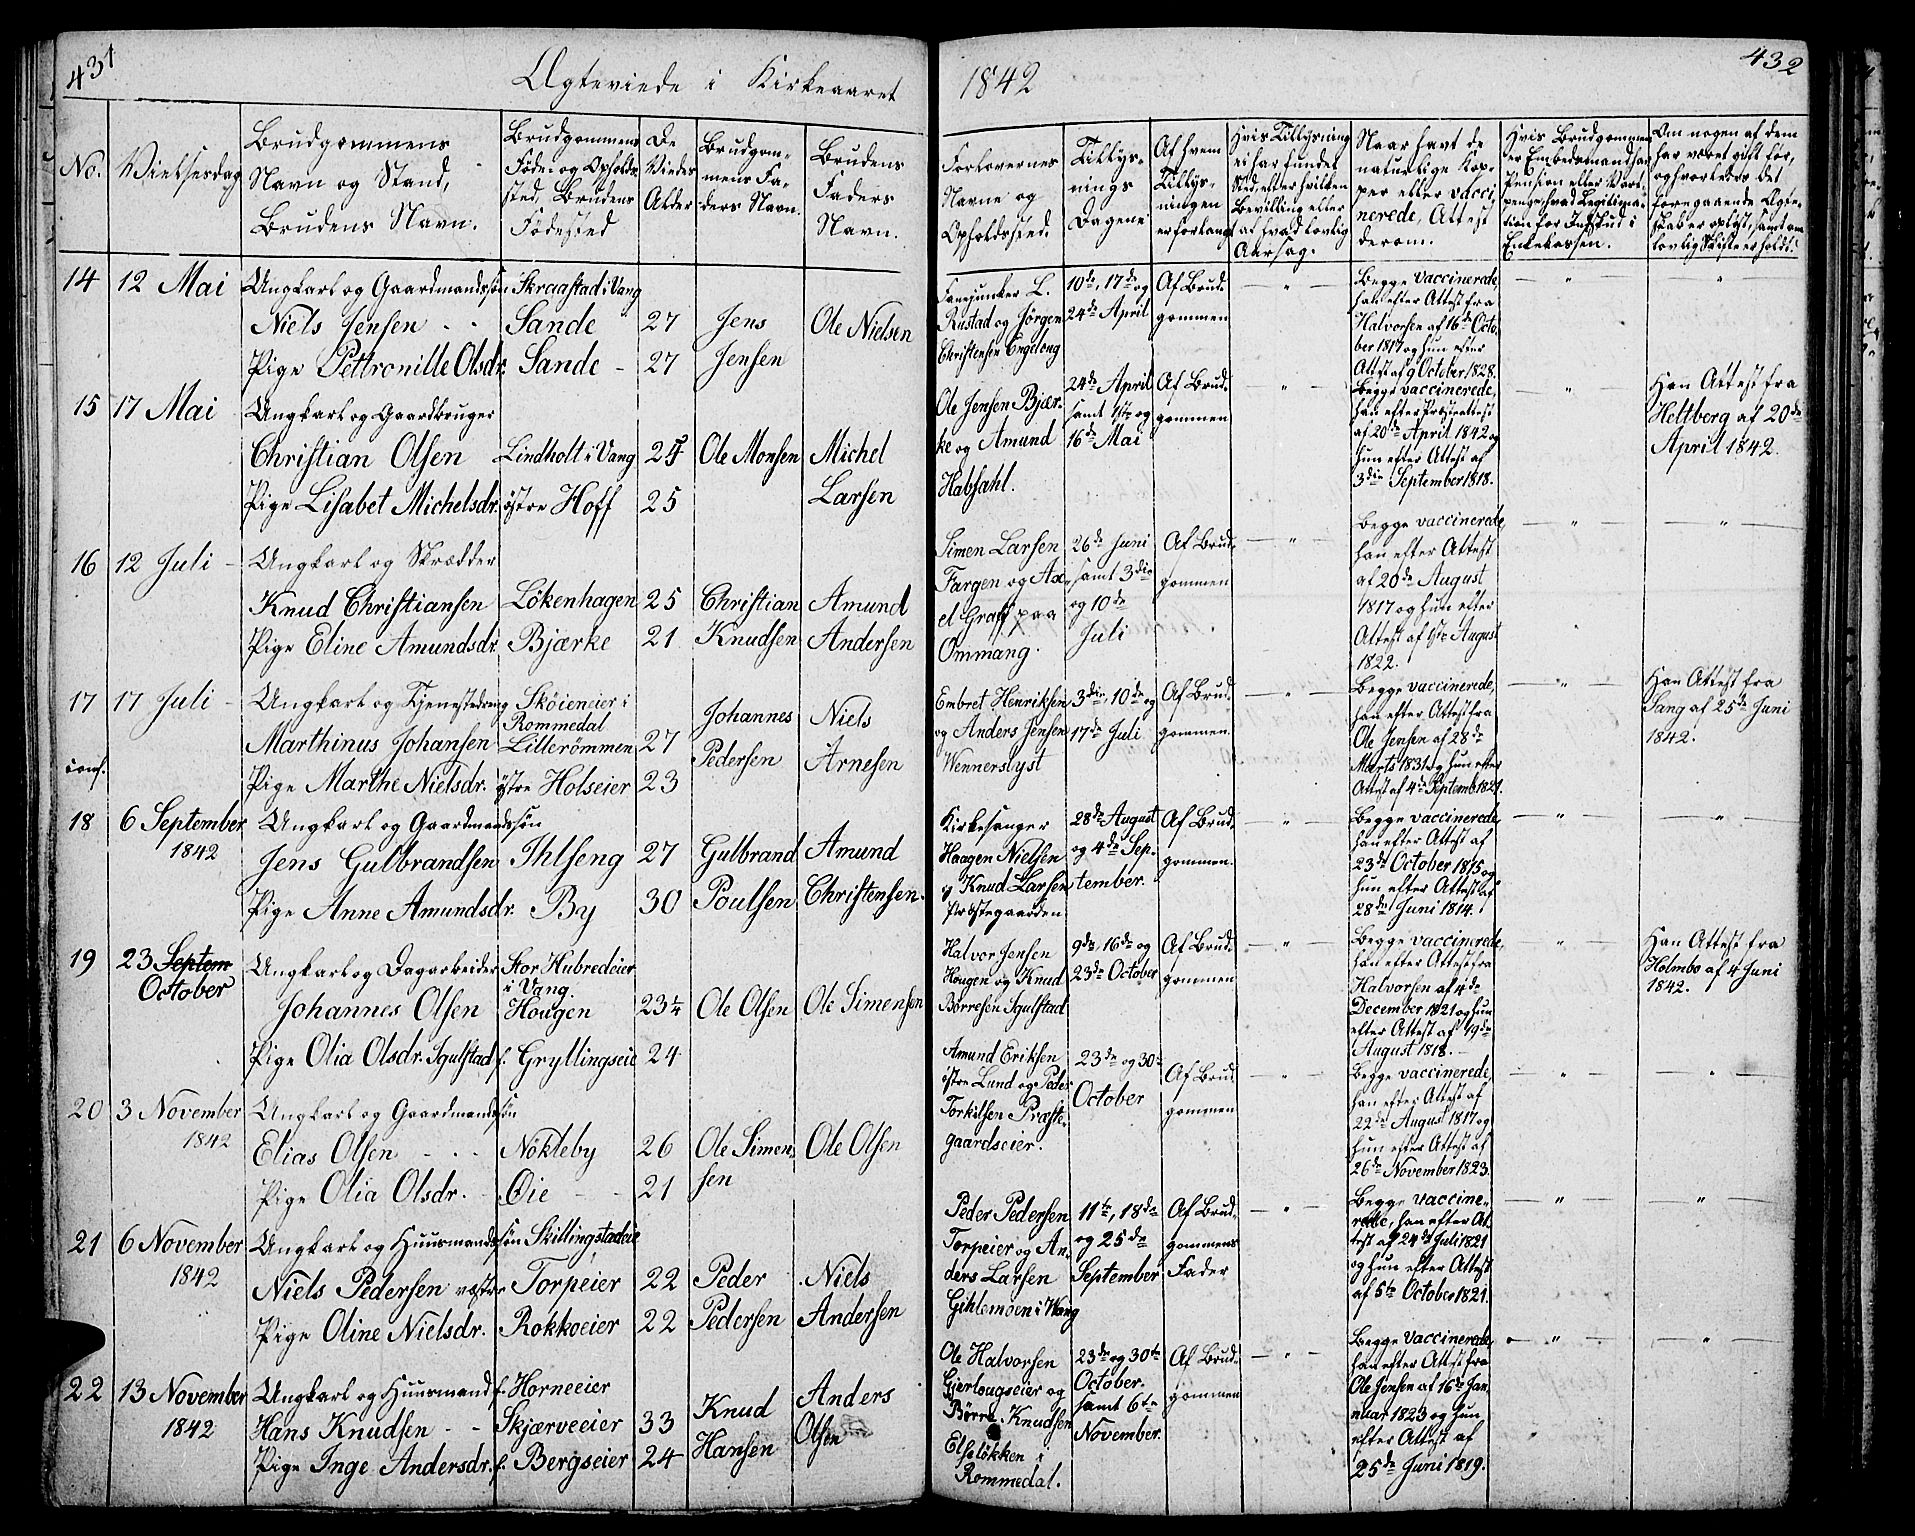 431
Ægteviede i Kirkeaaret
1842
432
No.
Vielsesdag
Brudgommens
Navn og Stand,
Brudens Navn.
Brudgommens
Føde- og Opholds-
sted, Brudens
Fødested
De
Viedes
Alder
Brudgom-
mens Fa-
ders Navn.
Brudens
Faders
Navn.
Forlovernes
Navne og
Opholdssted.
Tillys-
nings
Dagene
Af hvem
Tillys-
ningen
er forlangt
Hvis Tillysning
ei har fundet
Sted, efter hvilken
Bevilling eller
af hvad lovlig
Aarsag.
Naar havt de
naturlige Kop-
per eller vacci-
nerede, Attest
derom.
Hvis Brudgommen
er Embedsmand, han
Pension eller Vart-
penge, hvad Legitima-
tion for Indskud i
Enkekassen.
Om nogen af dem
har været gift før,
og hvorledes det
foregaaende Ægte-
skab er opløst, samt om
lovlig Skifte er holdt.
14 12 Mai Ungkarl og Gaardmandssøn Skraastad i Vang
Niels Jensen Sande 27 Jens Ole Nielsen
Pige Pettronille Olsdr. Sande 27 Jensen
Fanejunker L.
Rustad og Jørgen
Christensen Engelong
10de, 17de og
24de April
Af Brud-
gommen
Begge vaccinerede,
han efter Attest fra
Halvorsen af 16de Octo-
ber 1817 og hun efter
Attest af 9 October 1828.
15 17 Mai Ungkarl og Gaardbruger
Christian Olsen Lindholt i Vang 25 Ole Monsen Michel
Pige Lisabet Michelsdr. østre Hoff 25 Larsen
Ole Jensen Bjær-
ke og Amund
Habsahl.
24de April
samt 1ste og
16de Mai
Af Brud-
gommen
Begge vaccinerede,
han efter Præsteattest
af 20de April 1842 og
hun efter Attest af
3die September 1818.
Han Attest fra
Heltberg af 20de
April 1842.
16 12 Juli Ungkarl og Skrædder
Knud Christiansen Løkenhagen 25 Christian Amund
Pige Eline Amundsdr. Bjærke 21 Knudsen Andersen
Simen Larsen
Fargen og Ax-
el Graff paa
Ommang.
26de Juni
samt 3die
og 10de
Juli
Af Brud-
gommen
Begge vaccinerede,
han efter Attest
af 20de August
1817 og hun efter
Attest af 1ste August
1822.
17 17 Juli Ungkarl og Tjenestedreng Skøieneier i
Rommedal
Marthinus Johansen Lillerømmen 27 Johannes Niels
conf. Pige Marthe Nielsdr. østre Holseier 23 Pedersen Arnesen
Embret Henriksen
og Anders Jensen
Wennerslyst
3die, 10de og
17de Juli
Af Brud-
gommen.
Begge vaccinerede,
han efter Attest fra
Ole Jensen af 28de
Marts 1831 og hun efter
Attest af 4de Septemb. 1821.
Han Attest fra
Sang af 25de Juni
1842.
18 6 September Ungkarl og Gaardmandssøn
1842 Jens Gulbrandsen Ihlseng 27 Gulbrand Amund
Pige Anne Amundsdr. By 30 Poulsen Christensen.
Kirkesanger
Haagen Nielsen
og Knud Larsen
Præstegaarden
28de August
og 4de Sep-
tember.
Af Brud-
gommen.
Begge vaccinerede,
han efter Attest af
23de October 1815 og
hun efter Attest af
28de Juni 1814.
19 23 Septem Ungkarl og Dagarbeider Stor Hubredeier
October i Vang.
Johannes Olsen Hougen 23½ Ole Olsen Ole Simensen
Pige Olia Olsdr. Igulstad f. Gryllingseie 24
Halvor Jensen
Hougen og Knud
Børresen Igulstad
9de, 16de og
23de October
Af Brud-
gommen
Begge vaccinerede,
han efter Attest fra
Halvorsen af 4de
December 1821 og hun
efter Attest af 19de
August 1818.
Han Attest fra
Holmbo af 4 Juni
1842.
20 3 November Ungkarl og Gaardmandssøn
1842 Elias Olsen Nøkleby 26 Ole Simen- Ole Olsen
Pige Olia Olsdr. Øie 21 sen
Amund Eriksen
østre Lund og Peder
Torkilsen Præste-
gaardseier.
23de og 30te
October
Af Brud-
gommen
Begge vaccinerede,
han efter Attest af
22de August 1817 og
hun efter Attest af
26de November 1823
21 6 November Ungkarl og Huusmandssøn Skillingstadeie
1842 Niels Pedersen vestre Torpeier 22 Peder Niels
Pige Oline Nielsdr. Rokkoeier 22 Pedersen Andersen
Peder Pedersen
Torpeier og An-
ders Larsen
Gihlemoen i Wang
11te, 18de
og 25de
September
Af Brud-
gommens
Fader
Begge vaccine-
rede, han efter At-
test af 24de Juli 1821
og hun efter Attest
af 5te October 1821.
22 13 November Ungkarl og Huusmand f. Horneeier
1842 Hans Knudsen Skjærveeier 33 Knud Anders
Pige Inge Andersdr. f. Bergseier 24 Hansen Olsen
Ole Halvorsen
Gjerlougseier og
Børre Knudsen
Elseløkken i
Rommedal.
23de og 30te
October.
samt 6te
November.
Af Brud-
gommen
Begge vaccinerede,
han efter Attest fra
Ole Jensen af 16de Jan-
nuar 1823 og hun
efter Attest af
25de Juni 1819.